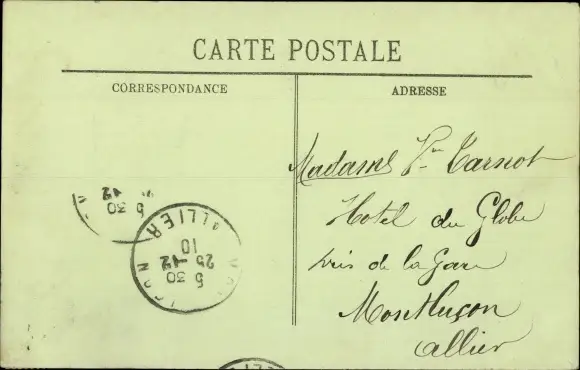 CARTE POSTALE
CORRESPONDANCE
ADRESSE
Madame Vve Carnot
Hotel du Globe
près de la Gare
Montluçon
Allier
5 30
12
ALLIER
5 30
25 -12
10